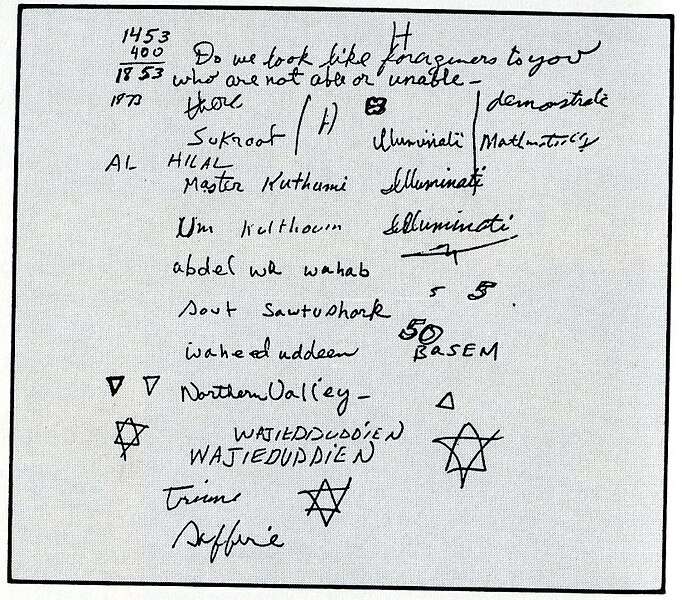 1453
400
1853
H
Do we look like foraginers to you
who are not able or unable -
1873 there demonstrate
Sukroot H Illuminati
AL HILAL
Master Kuthumi Illuminati
Um Kulthoum Illuminati
abdel wa wahab
5 5
Sout Sawtushark
50
waheeduddeen BASEM
Northern Valley -
WAJIEDIDUDDIEN
WAJIEDUDDIEN
Saffire